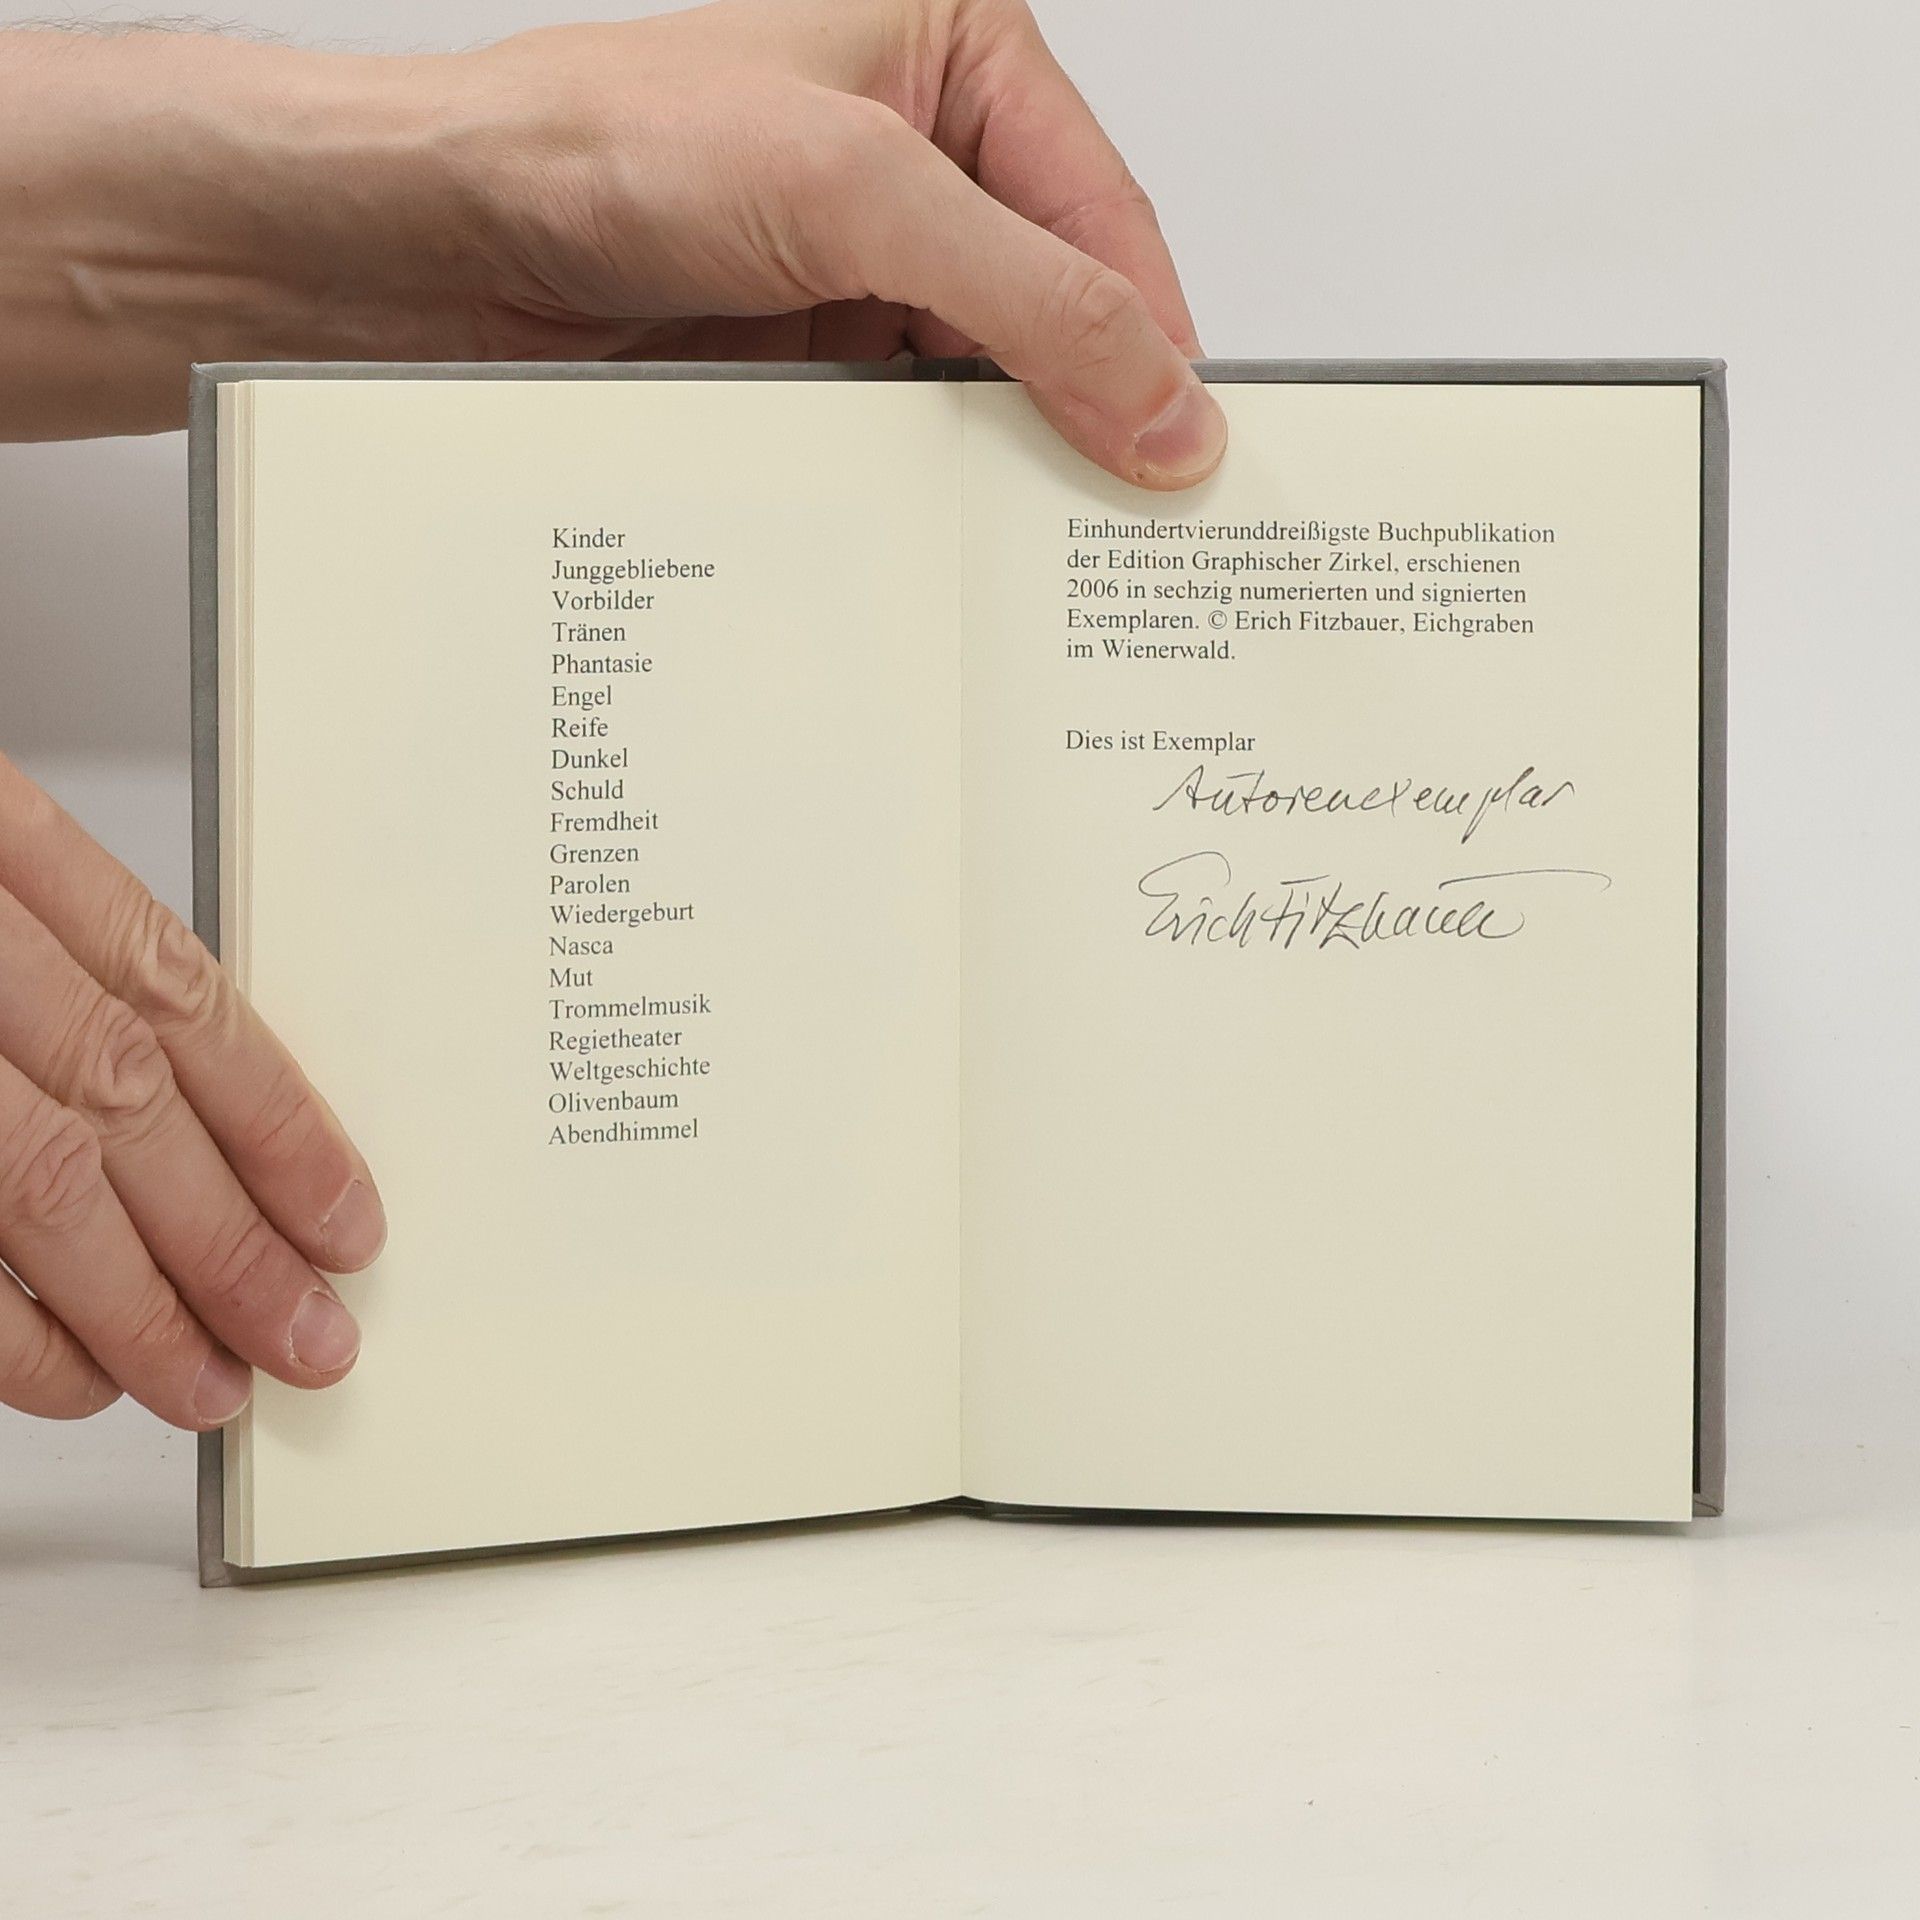 Kinder
Junggebliebene
Vorbilder
Tränen
Phantasie
Engel
Reife
Dunkel
Schuld
Fremdheit
Grenzen
Parolen
Wiedergeburt
Nasca
Mut
Trommelmusik
Regietheater
Weltgeschichte
Olivenbaum
Abendhimmel
Einhundertvierunddreißigste Buchpublikation
der Edition Graphischer Zirkel, erschienen
2006 in sechzig numerierten und signierten
Exemplaren. © Erich Fitzbauer, Eichgraben
im Wienerwald.
Dies ist Exemplar
Autorenexemplar
Erich Fitzbauer